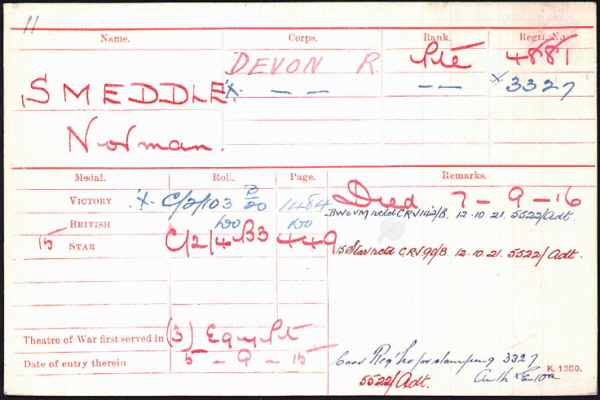 11
Name. Corps. Rank. Regtl. No.
DEVON R Pte 4881
SMEDDLE X — — — — X 3327
Norman.
Medal. Roll. Page. Remarks.
VICTORY X C/2/103 B20 1484 Died 7-9-16
BRITISH do do BW&VM retd CRV142/B. 12.10.21. 5522/Adt.
15 STAR C/2/4 B3 449 15 Star retd CRV90/B. 12.10.21. 5522/Adt.
Theatre of War first served in (3) Egypt
Date of entry therein 5-9-15
Corr Reg No for stamping 3327
5522/Adt. Auth X E10a
K. 1380.